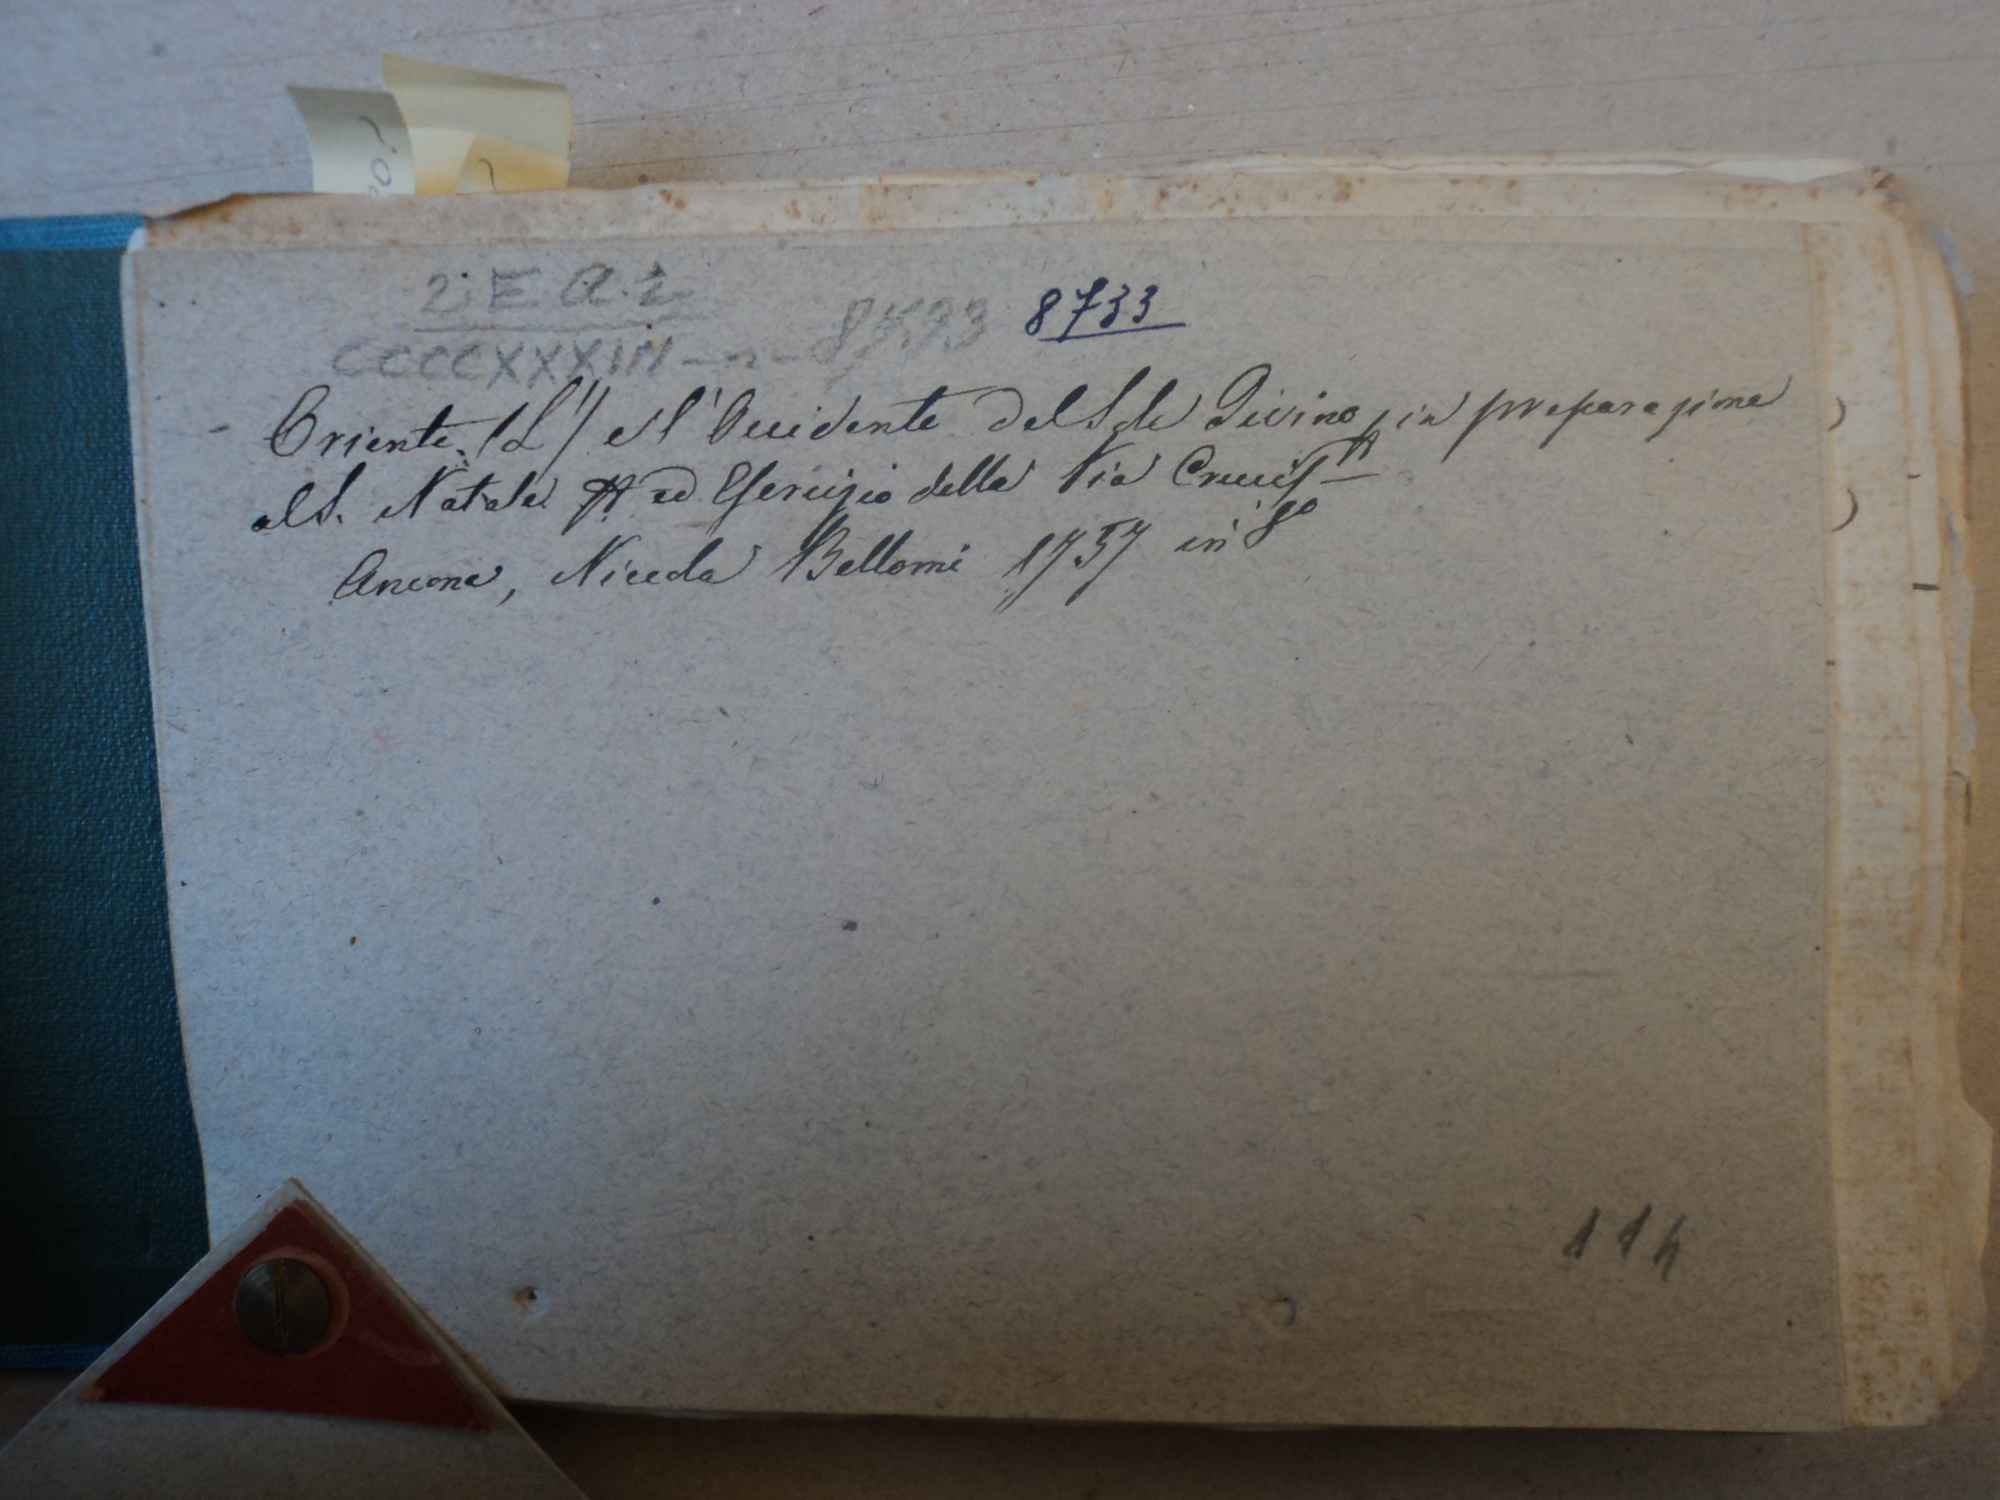 2 E a. 2
CCCCXXXIII - n - 8733 8733
Oriente. (L') e l'Occidente del Sole Divino, in preparazione
al S. Natale ed Esercizio della Via Crucis
Ancona, Nicola Bellomi 1737 in 8º
114